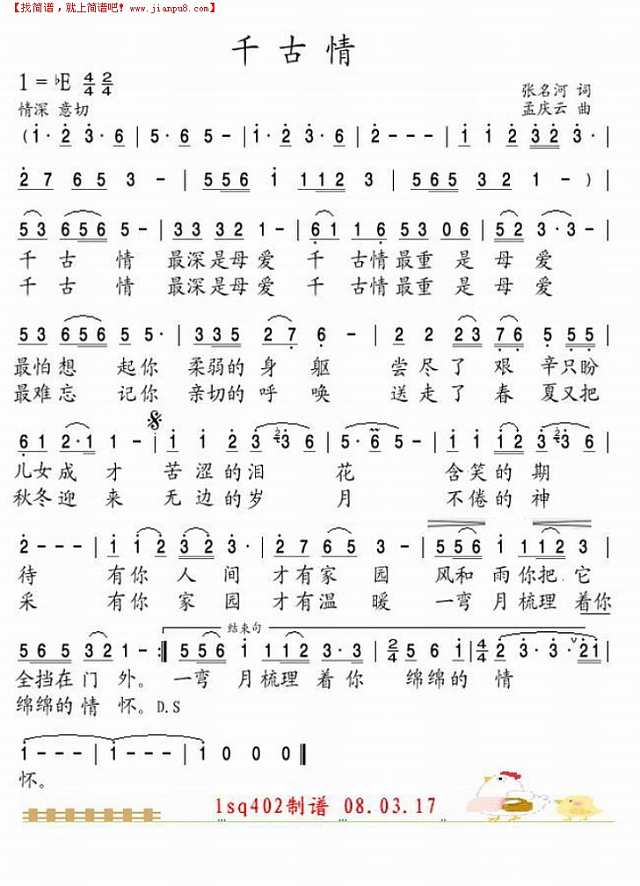 【找简谱，就上简谱吧! www.jianpu8.com】
千古情
1=♭E 4/4 2/4
张名河 词
情深 意切
孟庆云 曲
(1· 2 3· 6 | 5· 6 5 - | 1· 2 2· 6 | 2 - - - | 1 1 1 2 3 2 3· |
2 7 6 5 3 - | 5 5 5 1 1 1 2 3 | 6 5 5 5 3 2 1 - ) |
5 3 6 5 6 5 - | 3 3 3 3 2 1 - | 6 1 1 6 5 3 0 6 | 5 5 2 3· 3 - |
千 古 情 最深是母爱 千 古情最重 是 母 爱
千 古 情 最深是母爱 千 古情最重 是 母 爱
5 3 6 5 6 5 5· | 5 5 5 3 2 7 6· | 2 2 2 3 7 6 | 5· 5 5 5 |
最怕想 起你 柔弱的身 躯 尝尽了艰 辛只盼
最难忘 记你 亲切的呼 唤 送走了春 夏又把
6 1 2· 1 1 - | 1 1 2 3 3 6 | 5 · 6 5 - | 1 1 1 2 3· 3 |
儿女成 才 苦涩的泪 花 含笑的期
秋冬迎 来 无边的岁 月 不倦的神
2 - - - | 1 1 2 3 2 3· | 2 7 6 5 3· | 5 5 6 1 1 1 2 3 |
待 有你人间 才有家园 风和雨你把它
采 有你家园 才有温暖 一弯月梳理着你
结束句
5 6 5 5 3 2 1 - :| 5 5 6 1 1 1 2 3· 3 | 2/4 5 6 1 | 4/4 2· 3· 3· 2 1 |
全挡在门外。 一弯月梳理着你 绵绵的情
绵绵的情怀。D.S
1 - - - | 1 - - - | 1 0 0 0 ||
怀。
lsq402制谱 08.03.17